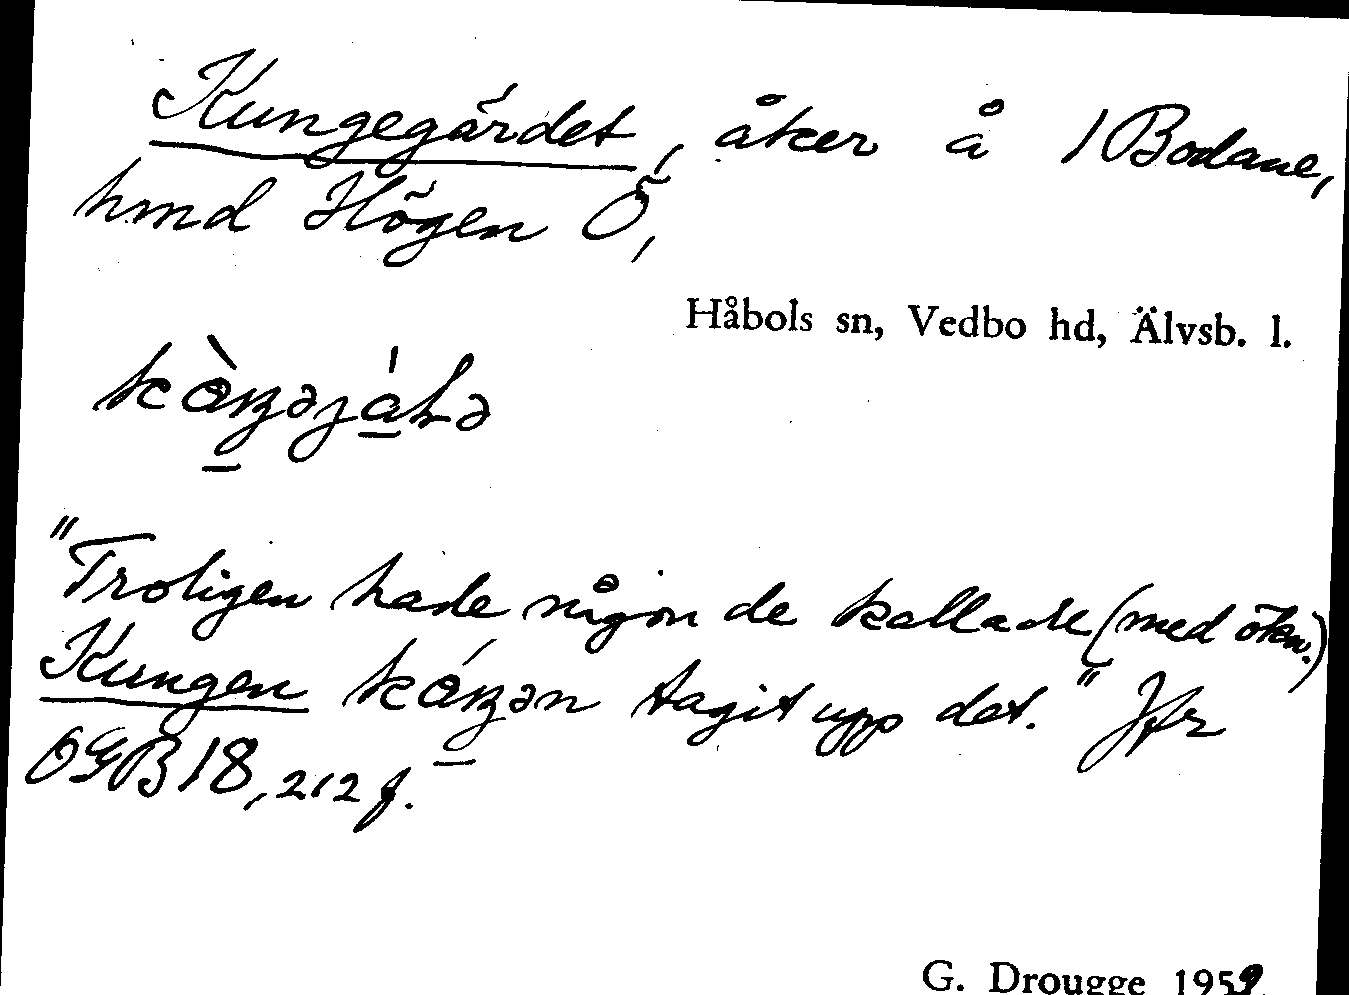 Kungegärdet, åker å 1 Bodane,
hmd Högen Ö,
Håbols sn, Vedbo hd, Älvsb. l.
"Troligen hade någon de kallade (med ökn.)
Kungen tagit upp det." Jfr
OGB 18, 212 f.
G. Drougge 1959.